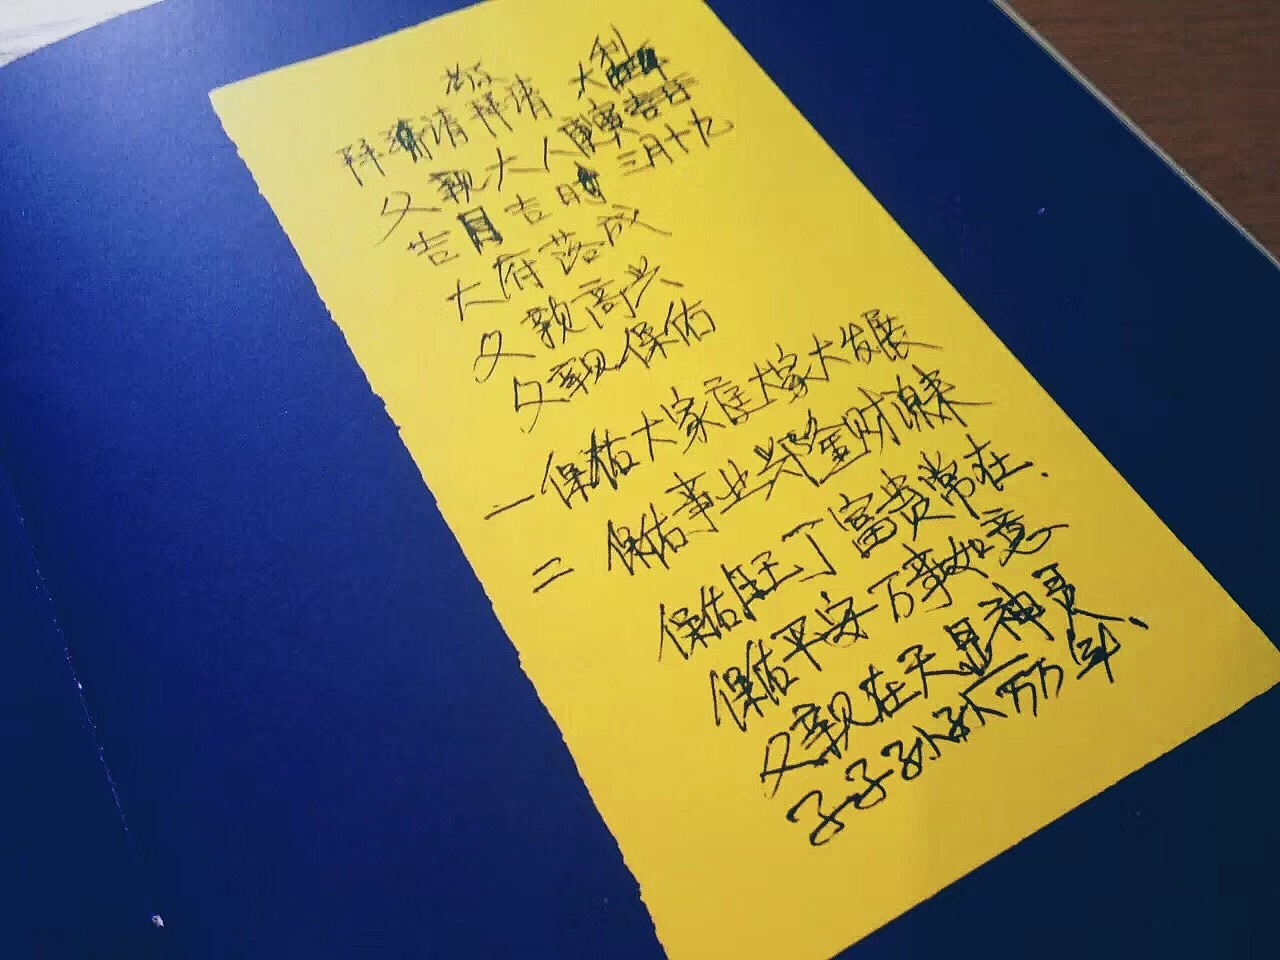 大利
拜请拜请
父亲大人庚寅吉年
吉月吉时 三月十九
大府落成
父亲高兴
父亲保佑
一保佑大家庭大家大发展
二保佑事业兴隆金财源来
保佑旺丁富贵常在.
保佑平安万事如意
父亲在天显神灵
子子孙孙万万年、